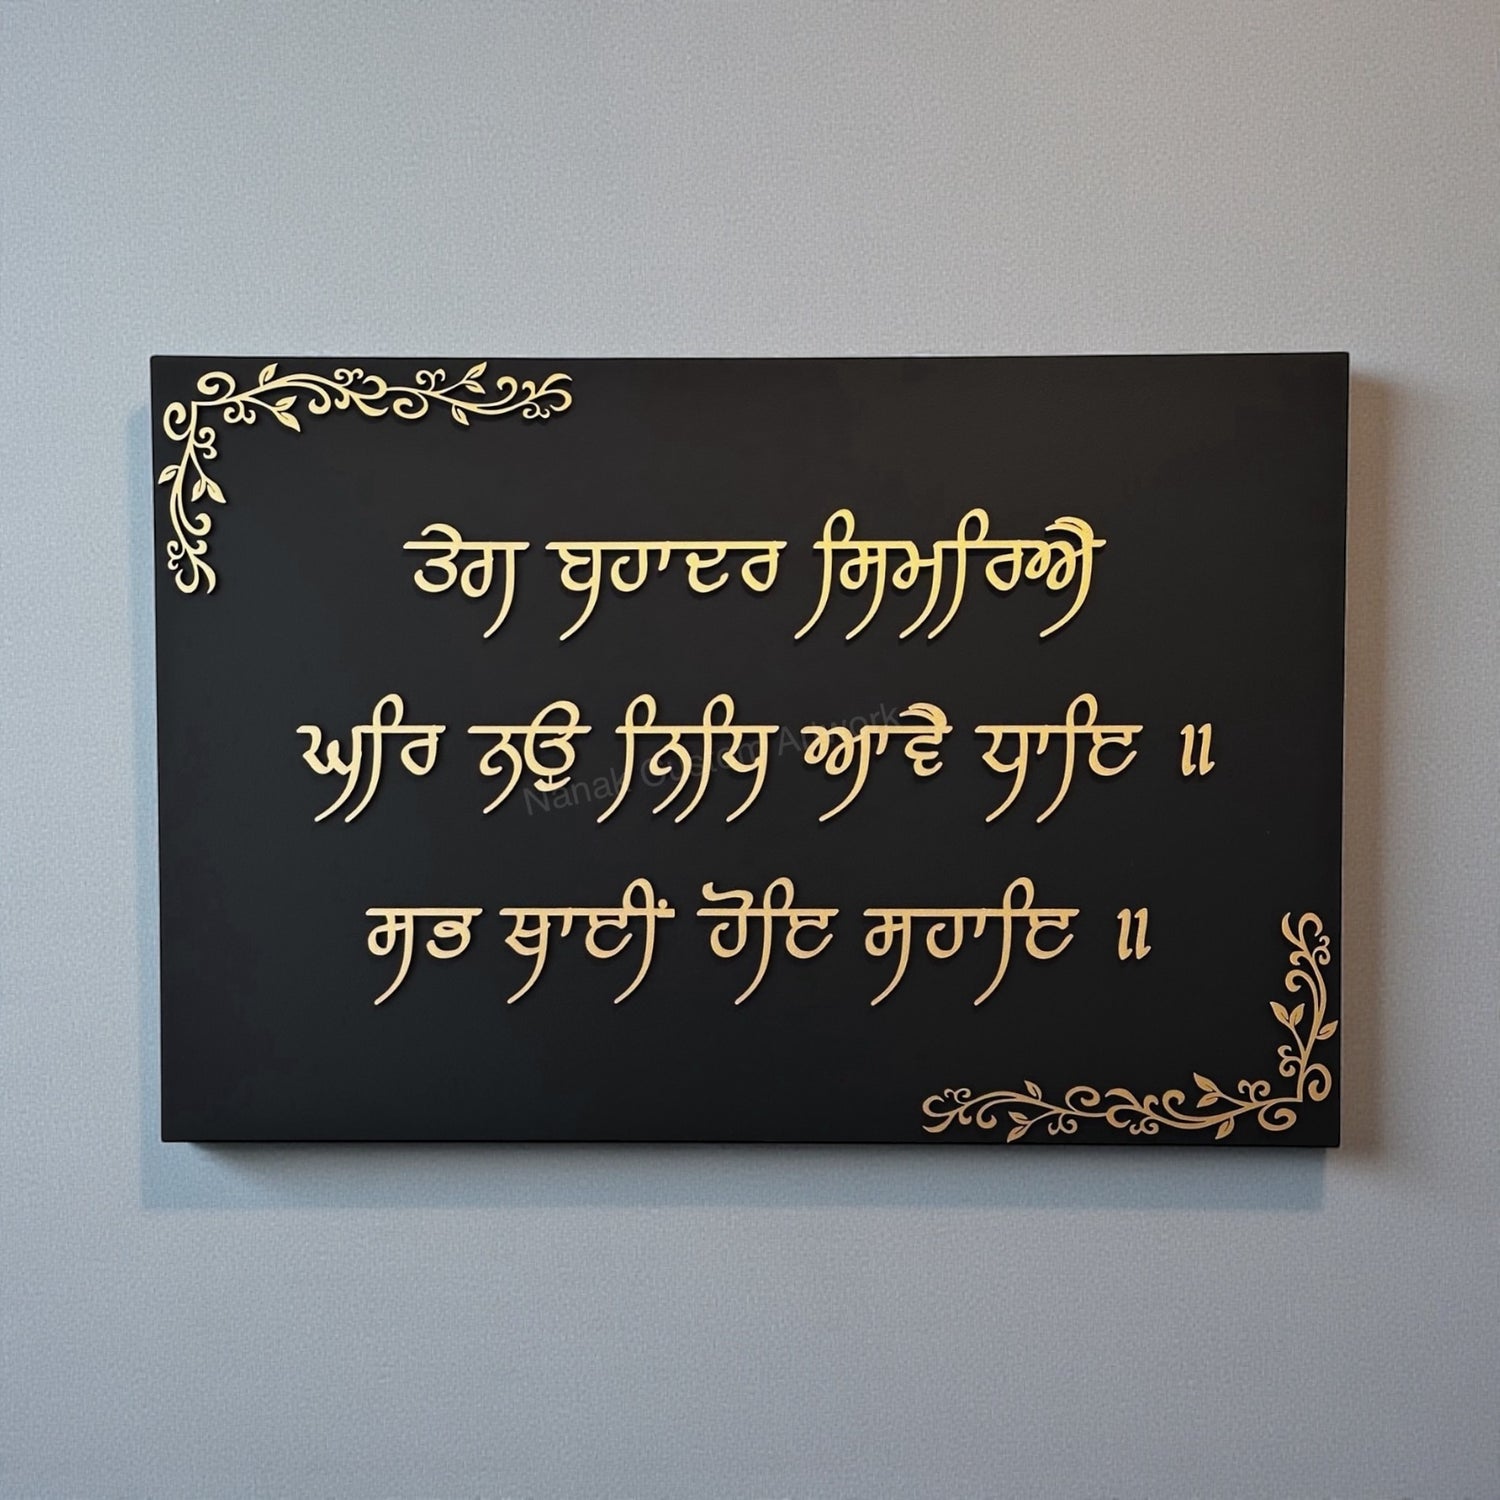 ਤੇਗ ਬਹਾਦਰ ਸਿਮਰਿਐ
ਘਰਿ ਨਉ ਨਿਧਿ ਆਵੈ ਧਾਇ ॥
ਸਭ ਥਾਈਂ ਹੋਇ ਸਹਾਇ ॥
Nanak Custom Artwork